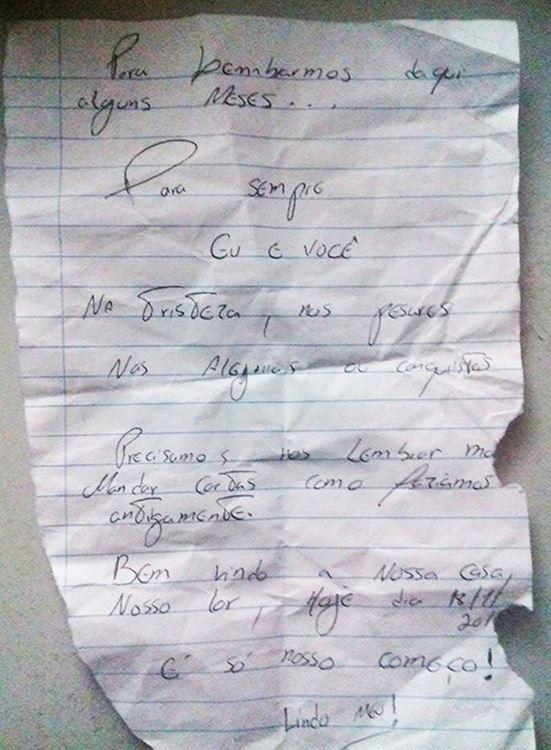 Para Lembrarmos daqui
alguns MESES...
Para SEMPRE
EU E VOCÊ
NA TRISTEZA, nos pesares
Nas Alegrias ou conquistas
Precisamos nos Lembrar
Mandar cartas como fazíamos
antigamente.
BEM Vindo a Nossa casa,
Nosso lar, Hoje dia 18/11
201
É só nosso começo!
Lindo MEU!